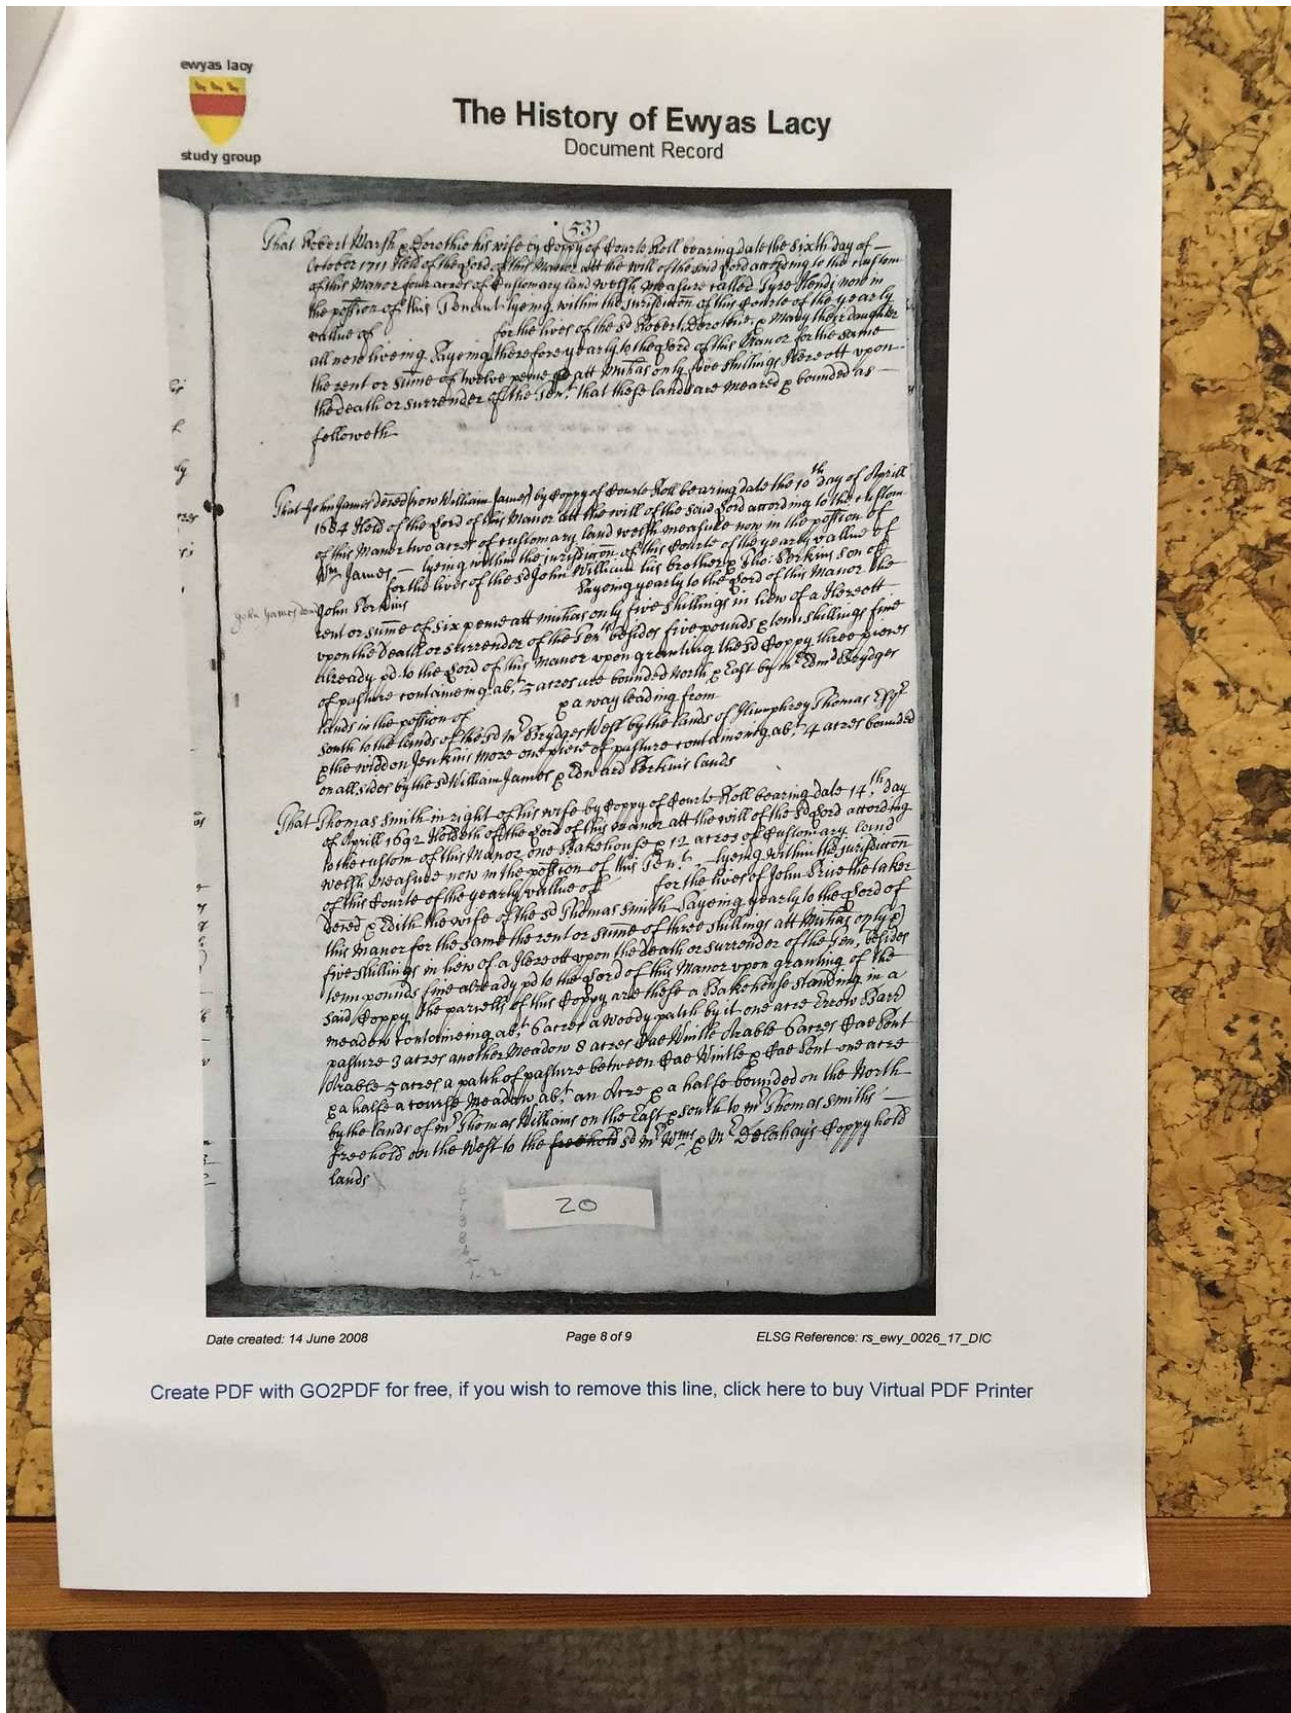 ewyas lacy
study group
The History of Ewyas Lacy
Document Record
(53)
That Robert Marsh & Dorothie his wife by Coppy of Courte Roll bearing date the Sixth day of
October 1711 Held of the Lord of this Manor att the will of the said Lord according to the custom
of this Manor four acres of Customary land Welsh measure called Tyre Hendi now in
the possion of this Tenant lyeing within the Jurisdiccon of this Courte of the yearly
vallue of for the lives of the sd Robert, Dorothie, & Mary their daughter
all now liveing Payeing therefore yearly to the Lord of this Manor for the same
the rent or sume of twelve pence att Michas only five shillings Hereott upon
the death or surrender of the Tent. that these lands are meared & bounded as
followeth
That John James deced (now William James) by Coppy of Courte Roll bearing date the 10th day of Aprill
1684 Held of the Lord of this Manor att the will of the said Lord according to the custom
of this Manor two acres of customary land welsh measure now in the possion of
Wm James — lyeing within the jurisdiccon of this Courte of the yearly vallue of
for the lives of the sd John William his brother & Tho: Perkins son of
John Perkins Payeing yearly to the Lord of this Manor the
John James
rent or sume of six pence att michas only five shillings in liew of a Hereott
upon the Death or surrender of the Tent besides five pounds & tenn shillings fine
already pd to the Lord of this Manor upon granting the sd Coppy three pieces
of pasture containeing abt. 5 acres are bounded North & East by mr Edmd Brydges
lands in the possion of & a way leading from
South to the lands of the sd Mr Brydges West by the lands of Humphrey Thomas Esqr
& the widdon Jenkins more one piece of pasture containeing abt. 4 acres bounded
on all sides by the sd William James & Edward Perkins lands
That Thomas Smith in right of his wife by Coppy of Courte Roll bearing date 14th day
of Aprill 1692 Holdeth of the Lord of this Manor att the will of the sd Lord according
to the custom of this Manor one Bakehouse & 12 acres of Customary land
welsh measure now in the possion of this Tent. lyeing within the jurisdiccon
of this Courte of the yearly vallue of for the lives of John Price the taker
deced & Edith the wife of the sd Thomas Smith Payeing yearly to the Lord of
this Manor for the same the rent or sume of three shillings att Michas only &
five shillings in liew of a Hereott upon the death or surrender of the Tent, besides
tenn pounds fine already pd to the Lord of this Manor upon granting of the
said Coppy. The parcells of this Coppy are these a Bakehouse standing in a
meadow containeing abt. 6 acres a woody patch by it one acre Barr
pasture 3 acres another Meadow 8 acres Cae Wintle Arable 6 acres Cae Pent
Arable 5 acres a patch of pasture between Cae Wintle & Cae Pent one acre
& a halfe a course Meadow abt. an Acre & a halfe bounded on the North
by the lands of mr Thomas Williams on the East & south to mr Thomas Smiths
freehold on the West to the freehold sd Mr Wms & Mr Delahays Coppy hold
lands
20
Date created: 14 June 2008 Page 8 of 9 ELSG Reference: rs_ewy_0026_17_DIC
Create PDF with GO2PDF for free, if you wish to remove this line, click here to buy Virtual PDF Printer